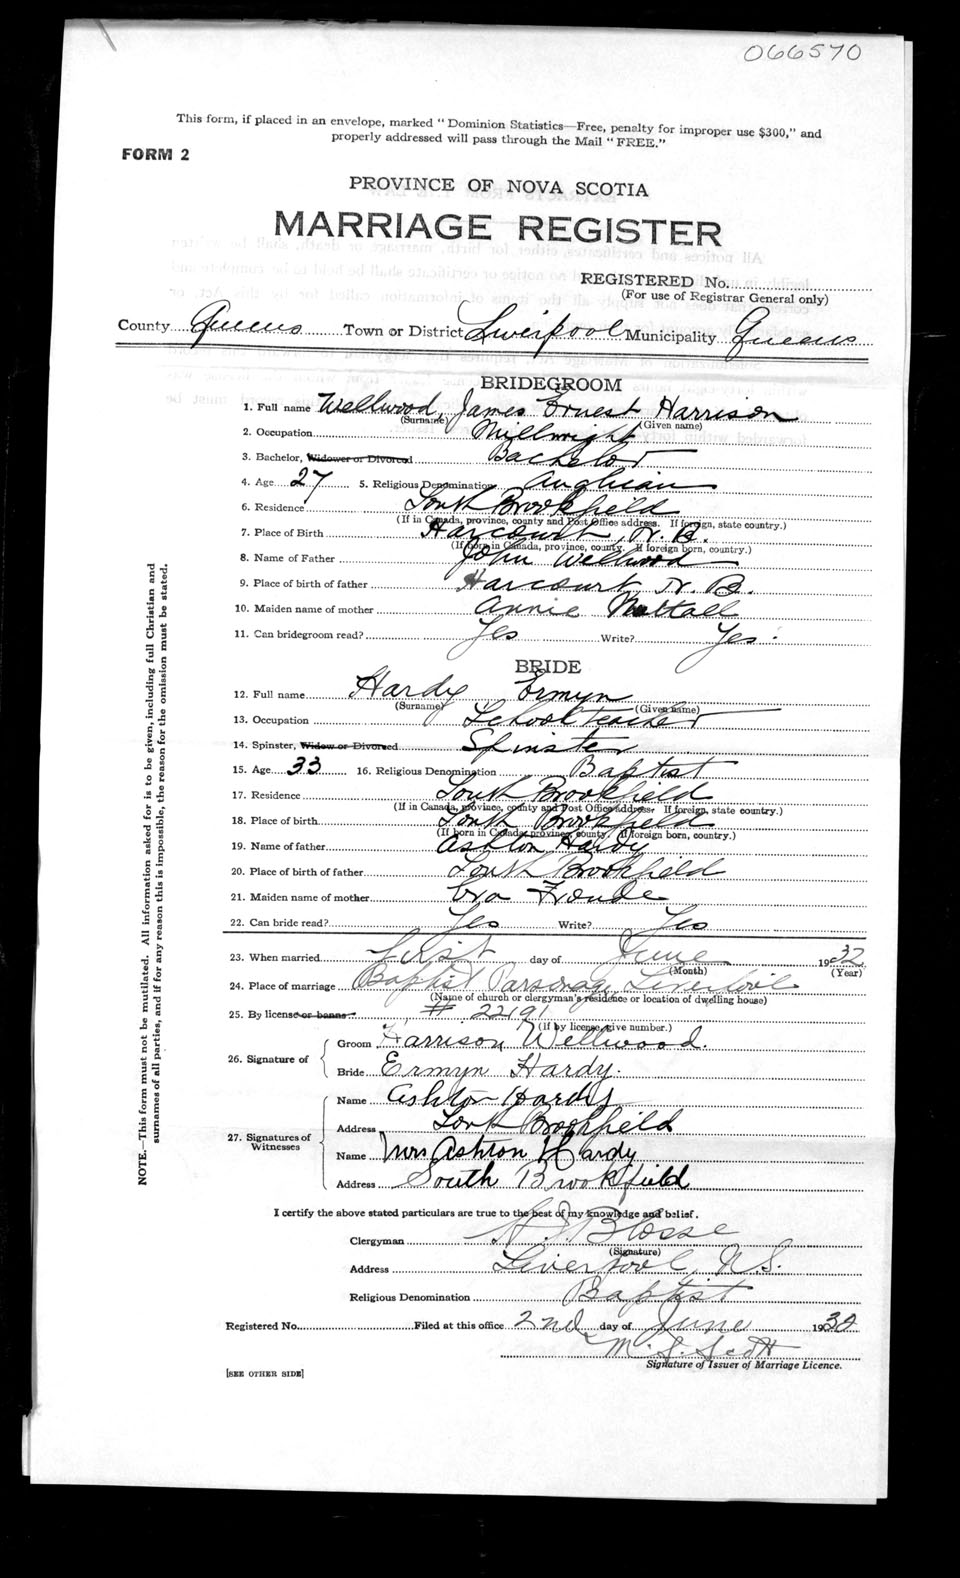 066570
This form, if placed in an envelope, marked "Dominion Statistics—Free, penalty for improper use $300," and
properly addressed will pass through the Mail "FREE."
FORM 2
PROVINCE OF NOVA SCOTIA
MARRIAGE REGISTER
REGISTERED No.
(For use of Registrar General only)
County Queens Town or District Liverpool Municipality Queens
BRIDEGROOM
1. Full name Wellwood, James Ernest Harrison
(Surname) (Given name)
2. Occupation Millwright
3. Bachelor, Widower or Divorced Bachelor
4. Age 27 5. Religious Denomination Anglican
6. Residence South Brookfield
(If in Canada, province, county and Post Office address. If foreign, state country.)
7. Place of Birth Harcourt, N. B.
(If born in Canada, province, county. If foreign born, country.)
8. Name of Father John Wellwood
9. Place of birth of father Harcourt N. B.
10. Maiden name of mother Annie
11. Can bridegroom read? Yes Write? Yes.
BRIDE
12. Full name Hardy Ermyn
(Surname) (Given name)
13. Occupation School teacher
14. Spinster, Widow or Divorced Spinster
15. Age 33 16. Religious Denomination Baptist
17. Residence South Brookfield
(If in Canada, province, county and Post Office address. If foreign, state country.)
18. Place of birth South Brookfield
(If born in Canada, province, county. If foreign born, country.)
19. Name of father Ashton Hardy
20. Place of birth of father South Brookfield
21. Maiden name of mother
22. Can bride read? Yes Write? Yes
23. When married First day of June 1932
(Month) (Year)
24. Place of marriage Baptist Parsonage Liverpool
(Name of church or clergyman's residence or location of dwelling house)
25. By license or banns # 22191
(If by license give number.)
26. Signature of
Groom Harrison Wellwood.
Bride Ermyn Hardy.
27. Signatures of Witnesses
Name Ashton Hardy
Address South Brookfield
Name Mrs Ashton Hardy
Address South Brookfield
I certify the above stated particulars are true to the best of my knowledge and belief.
Clergyman
(Signature)
Address Liverpool, N.S.
Religious Denomination Baptist
Registered No. Filed at this office 2nd day of June 1932
M. S. Scott
Signature of Issuer of Marriage Licence.
[SEE OTHER SIDE]
NOTE.—This form must not be mutilated. All information asked for is to be given, including full Christian and
surnames of all parties, and if for any reason this is impossible, the reason for the omission must be stated.